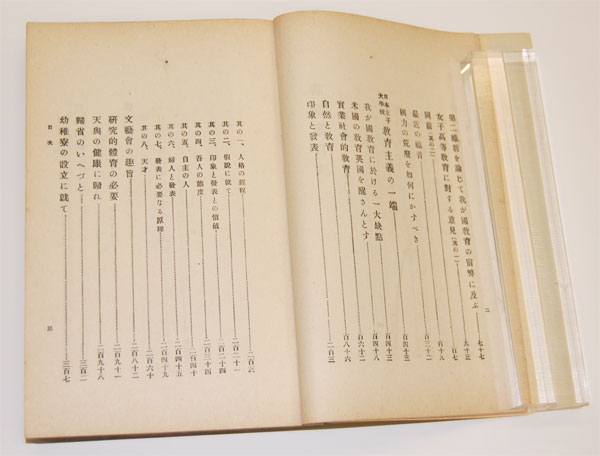 二
第二維新を論じて我が國教育の宿弊に及ぶ 七十七
女子高等教育に對する意見(其の一) 九十三
同前(其の二) 百七
最近の福音 百十九
國力の荒廢を如何にかすべき 百三十二
日本女子大學校 教育主義の一端 百四十三
我が國教育に於ける一大缺點 百四十八
米國の教育英國を醒さんとす 百六十二
實業社會的教育
自然と教育 百八十六
印象と發表 二百三
其の一、人格の歷程 二百三
其の二、假設に就て 二百十一
其の三、印象と發表との價値 二百二十四
其の四、吾人の態度 二百三十四
其の五、自主の人 二百四十
其の六、婦人と發表 二百四十五
其の七、發表に必要なる原理 二百四十九
其の八、天才 二百六十
文藝會の趣旨 二百八十二
研究的體育の必要 二百九十一
天與の健康に歸れ 二百九十八
歸省のいへづと 三百二
幼稚寮の設立に就て 三百七
目次
三